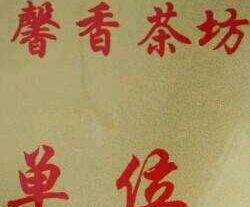 馨香茶坊
单位